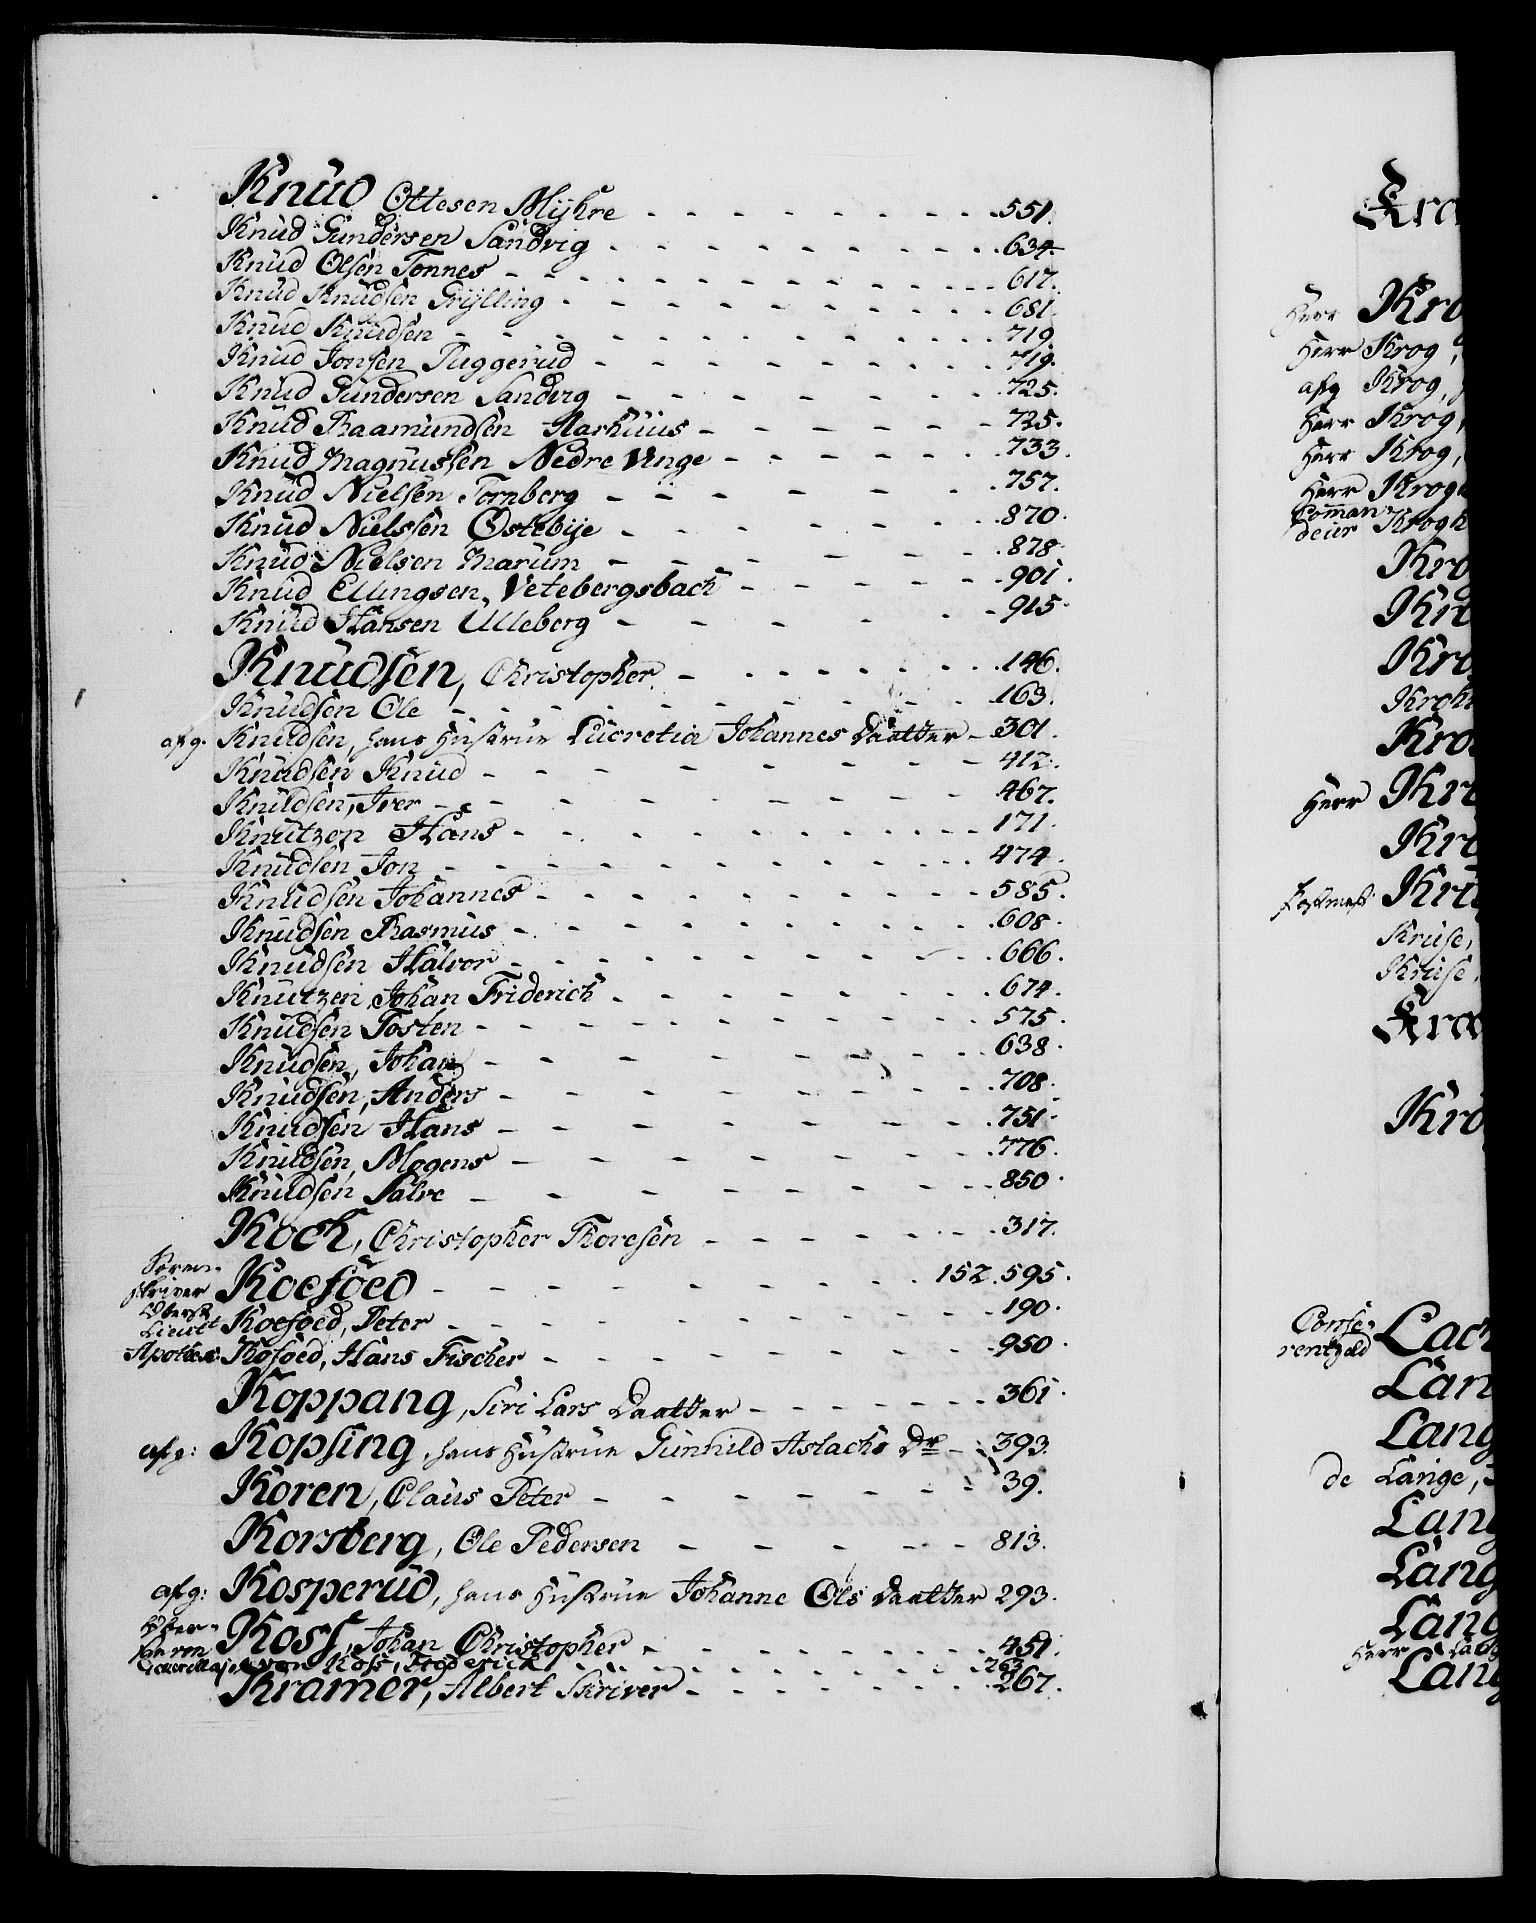 Knud Ottesen Mÿhre - - - - - - - - 551.
Knud Gundersen Sandvig - - - - - - - - 634.
Knud Olsen Tonnes - - - - - - - - 617.
Knud Knudsen Grÿlling - - - - - - - - 681.
Knud Knudsen - - - - - - - - 719.
Knud Jonsen Ruggerud - - - - - - - - 719.
Knud Gundersen Sandvig - - - - - - - - 725.
Knud Raamundsen Aarhuus - - - - - - 725.
Knud Magnussen Nedre Unge - - - - - - 733.
Knud Nielsen Tornberg - - - - - - 757.
Knud Nielssen Østebÿe - - - - - - 870.
Knud Nielsen Marum - - - - - - 878.
Knud Ellingsen, Vetebergsbach - - - - - 901.
Knud Hansen Ulleberg - - - - - 915.
Knudsen, Christopher - - - - - - - 146.
Knudsen Ole - - - - - - - - 163.
afg. Knudsen, hans Hustrue Lucretia Johannes Daatter - 301.
Knudsen Knud - - - - - - - 412.
Knudsen, Iver - - - - - - - 467.
Knutzon Hans - - - - - - - 171.
Knudsen Jon - - - - - - - 474.
Knudsen Johannes - - - - - - - 585.
Knudsen Rasmus - - - - - - - 608.
Knudsen Halvor - - - - - - - 666.
Knutzen, Johan Friderich - - - - - - - 674.
Knudsen Tosten - - - - - - - 575.
Knudsen, Johan - - - - - - - 638.
Knudsen, Anders - - - - - - - 708.
Knudsen Hans - - - - - - - 751.
Knudsen, Mogens - - - - - - - 776.
Knudsen Salve - - - - - - - 850.
Koch, Christopher Thoresen - - - - - - 317.
Soren-
skriver Koefoed - - - - - - - 152. 595.
Oberst
Lieut Koefoed, Peter - - - - - - - 190.
Apothek: Kofoed, Hans Fischer - - - - - - - 950.
Koppang, Siri Lars Daatter - - - - - - 361.
afg: Kopsing, hans Hustrue Gunnild Aslachs Dr - 393.
Koren, Claus Peter - - - - - - 39.
Korsberg, Ole Pedersen - - - - - - 813.
afg: Kosperud, hans Hustrue Johanne Ols Daatter 293.
Koss, Johan Christopher - - - - - - 451.
von Koss, Frederick - - - - - - 263.
Kramer, Albert Skriver - - - - - - 267.
Kra
Herr Kro
Herr Krog,
afg Krog,
Herr Krog,
Herr Krog,
Herr Krog
Comman-
deur Krogh
Kro
Kro
Kro
Kroh
Kro
Herr Kr
Kr
Postmest: Kru
Kruse,
Kruse,
Kra
Krö
Confe-
rentzråd Lach
Lan
Lang
de Lange,
Lang
Lang
Lang
Herr Lang
Lang